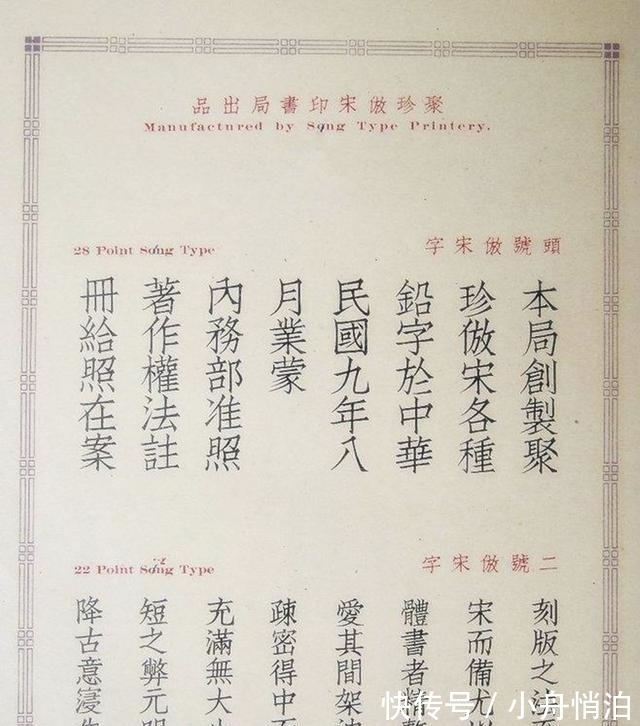 聚珍倣宋印書局出品
Manufactured by Song Type Printery.
頭號倣宋字
28 Point Song Type
本局創製聚
珍倣宋各種
鉛字於中華
民國九年八
月業蒙
內務部准照
著作權法註
冊給照在案
二號倣宋字
22 Point Song Type
刻版之
宋而備尤
體書者精
愛其間架
疎密得中
充滿無大
短之弊元明
降古意寖
快传号/小舟悄泊